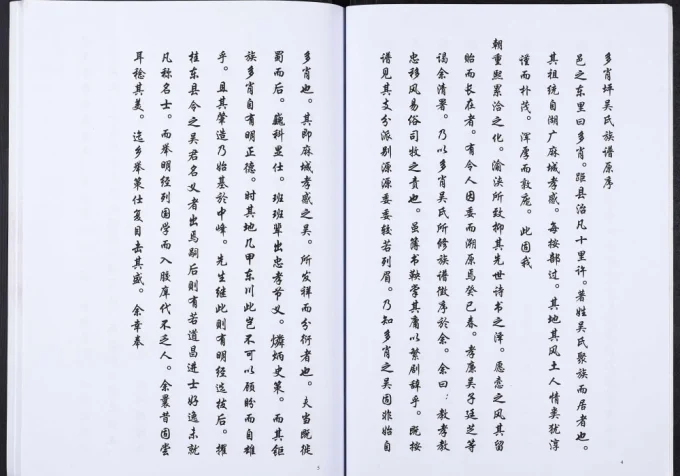 多肖坪吴氏族谱原序
邑之东里曰多肖。距县治凡十里许。著姓吴氏聚族而居者也。
其祖统自湖广麻城孝感。每按部过。其地其风土人情类犹淳
谨而朴茂。浑厚而敦庞。此固我
朝重熙累洽之化。沦浃所致抑其先世诗书之泽。愿悫之风其留
贻而长在者。有令人因委而溯原焉癸已春。孝廉吴子廷芝等
谒余清署。乃以多肖吴氏所修族谱徵序於余。余曰：教孝教
忠移风易俗司牧之责也。虽簿书鞅掌其庸以繁剧辞乎。既按
谱见其支分派别源源委委较若列眉。乃知多肖之吴固非始自
4
多肖也。其即麻城孝感之吴。所发祥而分衍者也。夫当既徙
蜀而后。巍科显仕。班班辈出忠孝节义。燐炳史策。而其钜
族多肖自有明正德。时其地几甲东川此岂不可以顾盼而自雄
乎。且其肇造乃始基於中峰。先生继此则有明经选拔后。擢
桂东县令之吴君名义者出焉嗣后则有若道昌进士好逸未就
凡称名士。而举明经到国学而入胶庠代不乏人。余曩昔固尝
耳稔其美。迄乡举荣仕复目击其盛。余幸奉
5